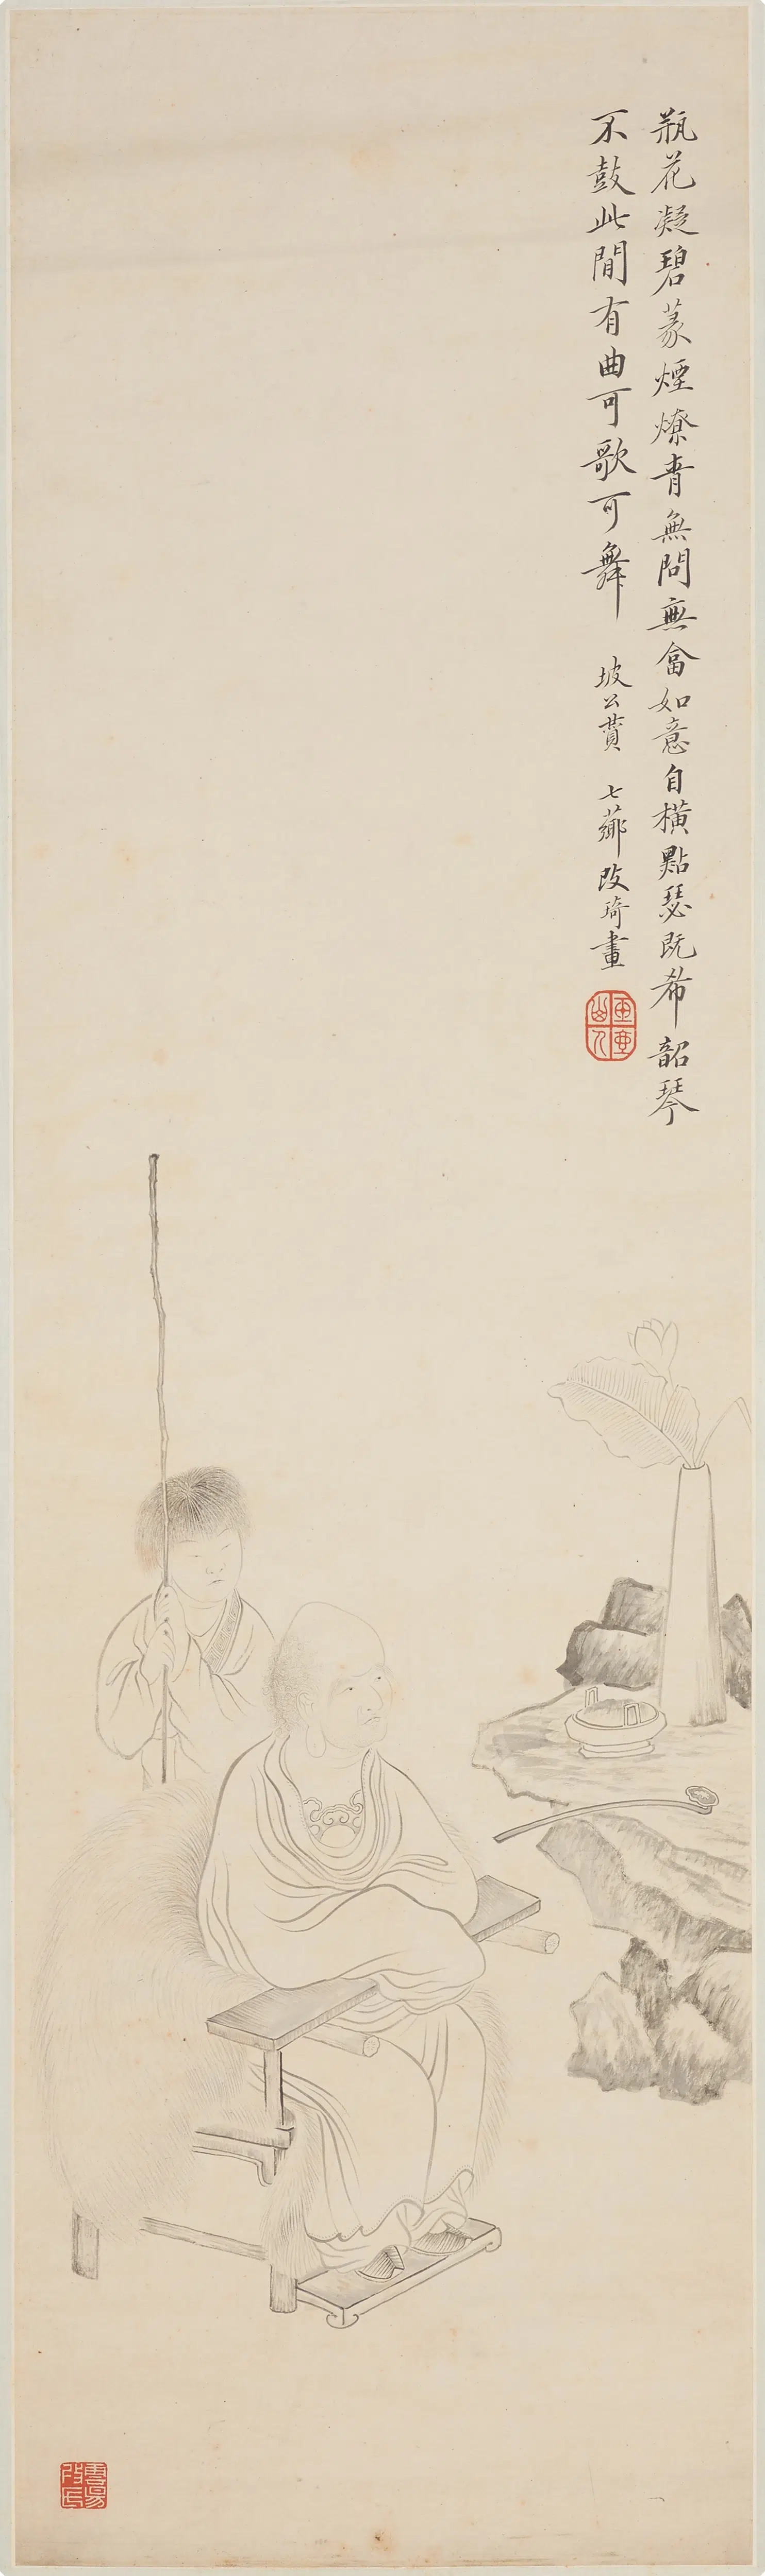 瓶花凝碧篆煙燎青無問無畣如意自橫點瑟既希韶琴
不鼓此間有曲可歌可舞 坡公贊 七薌改琦畫
玉壺山人